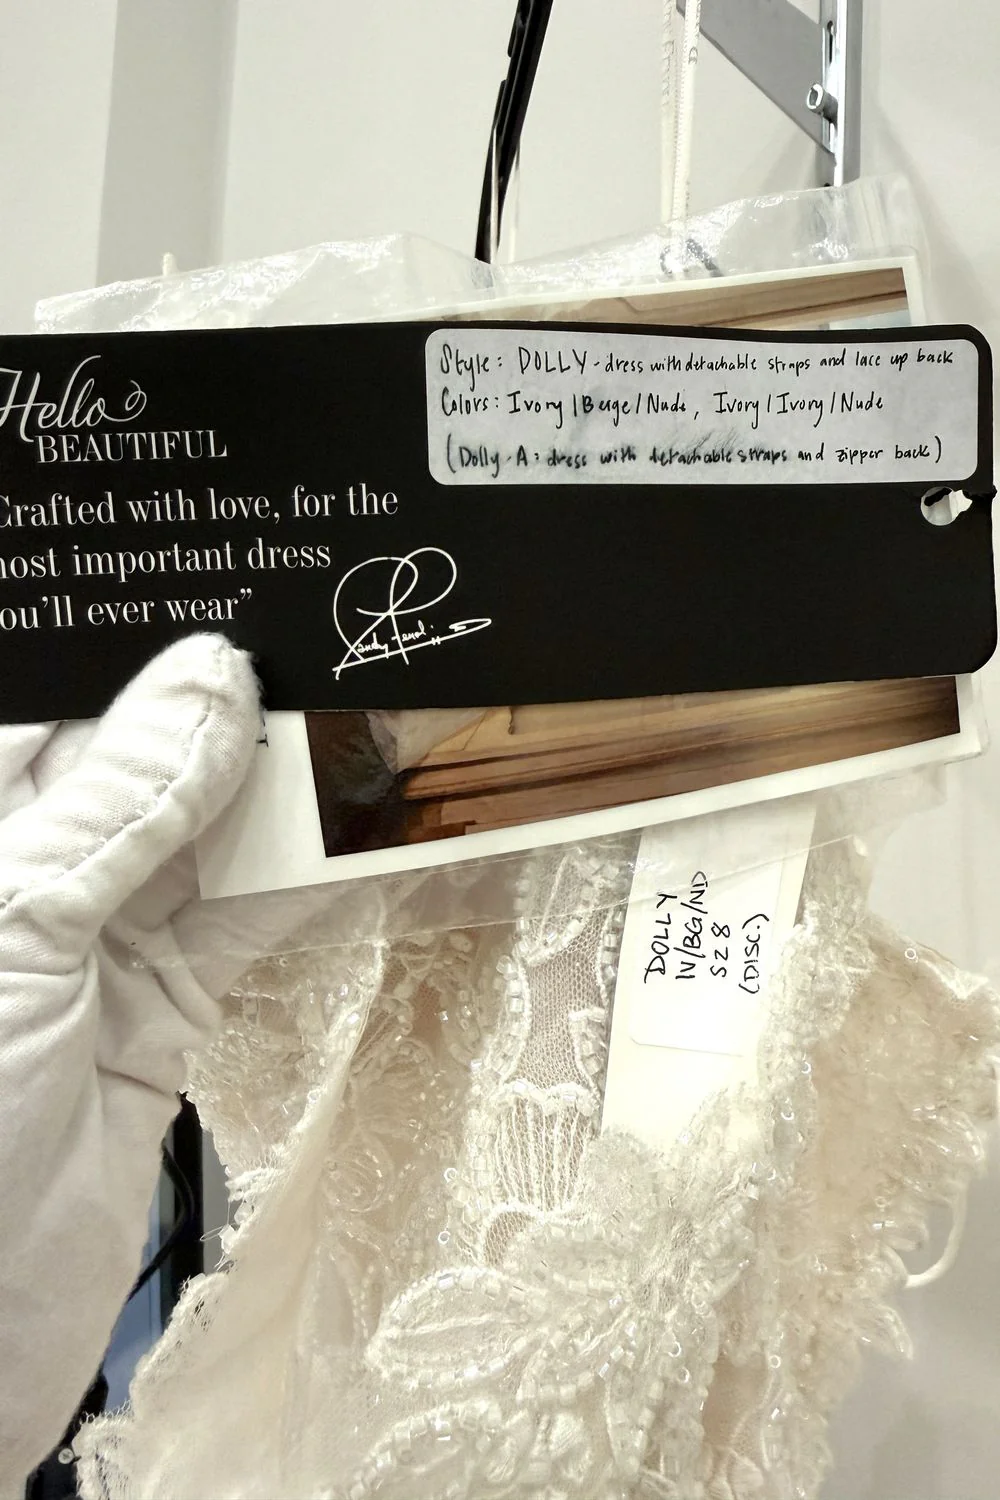 Hello
BEAUTIFUL
Crafted with love, for the
most important dress
you'll ever wear”
Style: DOLLY - dress with detachable straps and lace up back
Colors: Ivory/Beige/Nude, Ivory/Ivory/Nude
(Dolly-A: dress with detachable straps and zipper back)
DOLLY
IV/BG/ND
SZ 8
(DISC.)